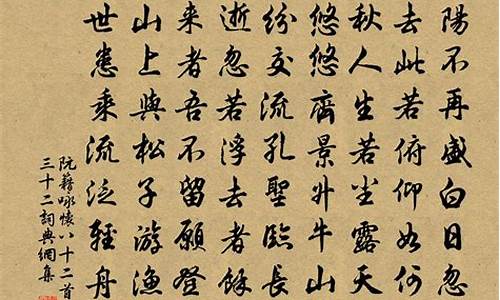 陽不再盛白日忽
去此若俯仰如何
秋人生若尘露天
悠悠齊景升牛山
紛交流孔聖臨長
逝忽若浮去者餘
来者吾不留願登
山上與松子游漁
世患乘流泛轻舟
阮籍咏懷八十二首
三十二詞典網集